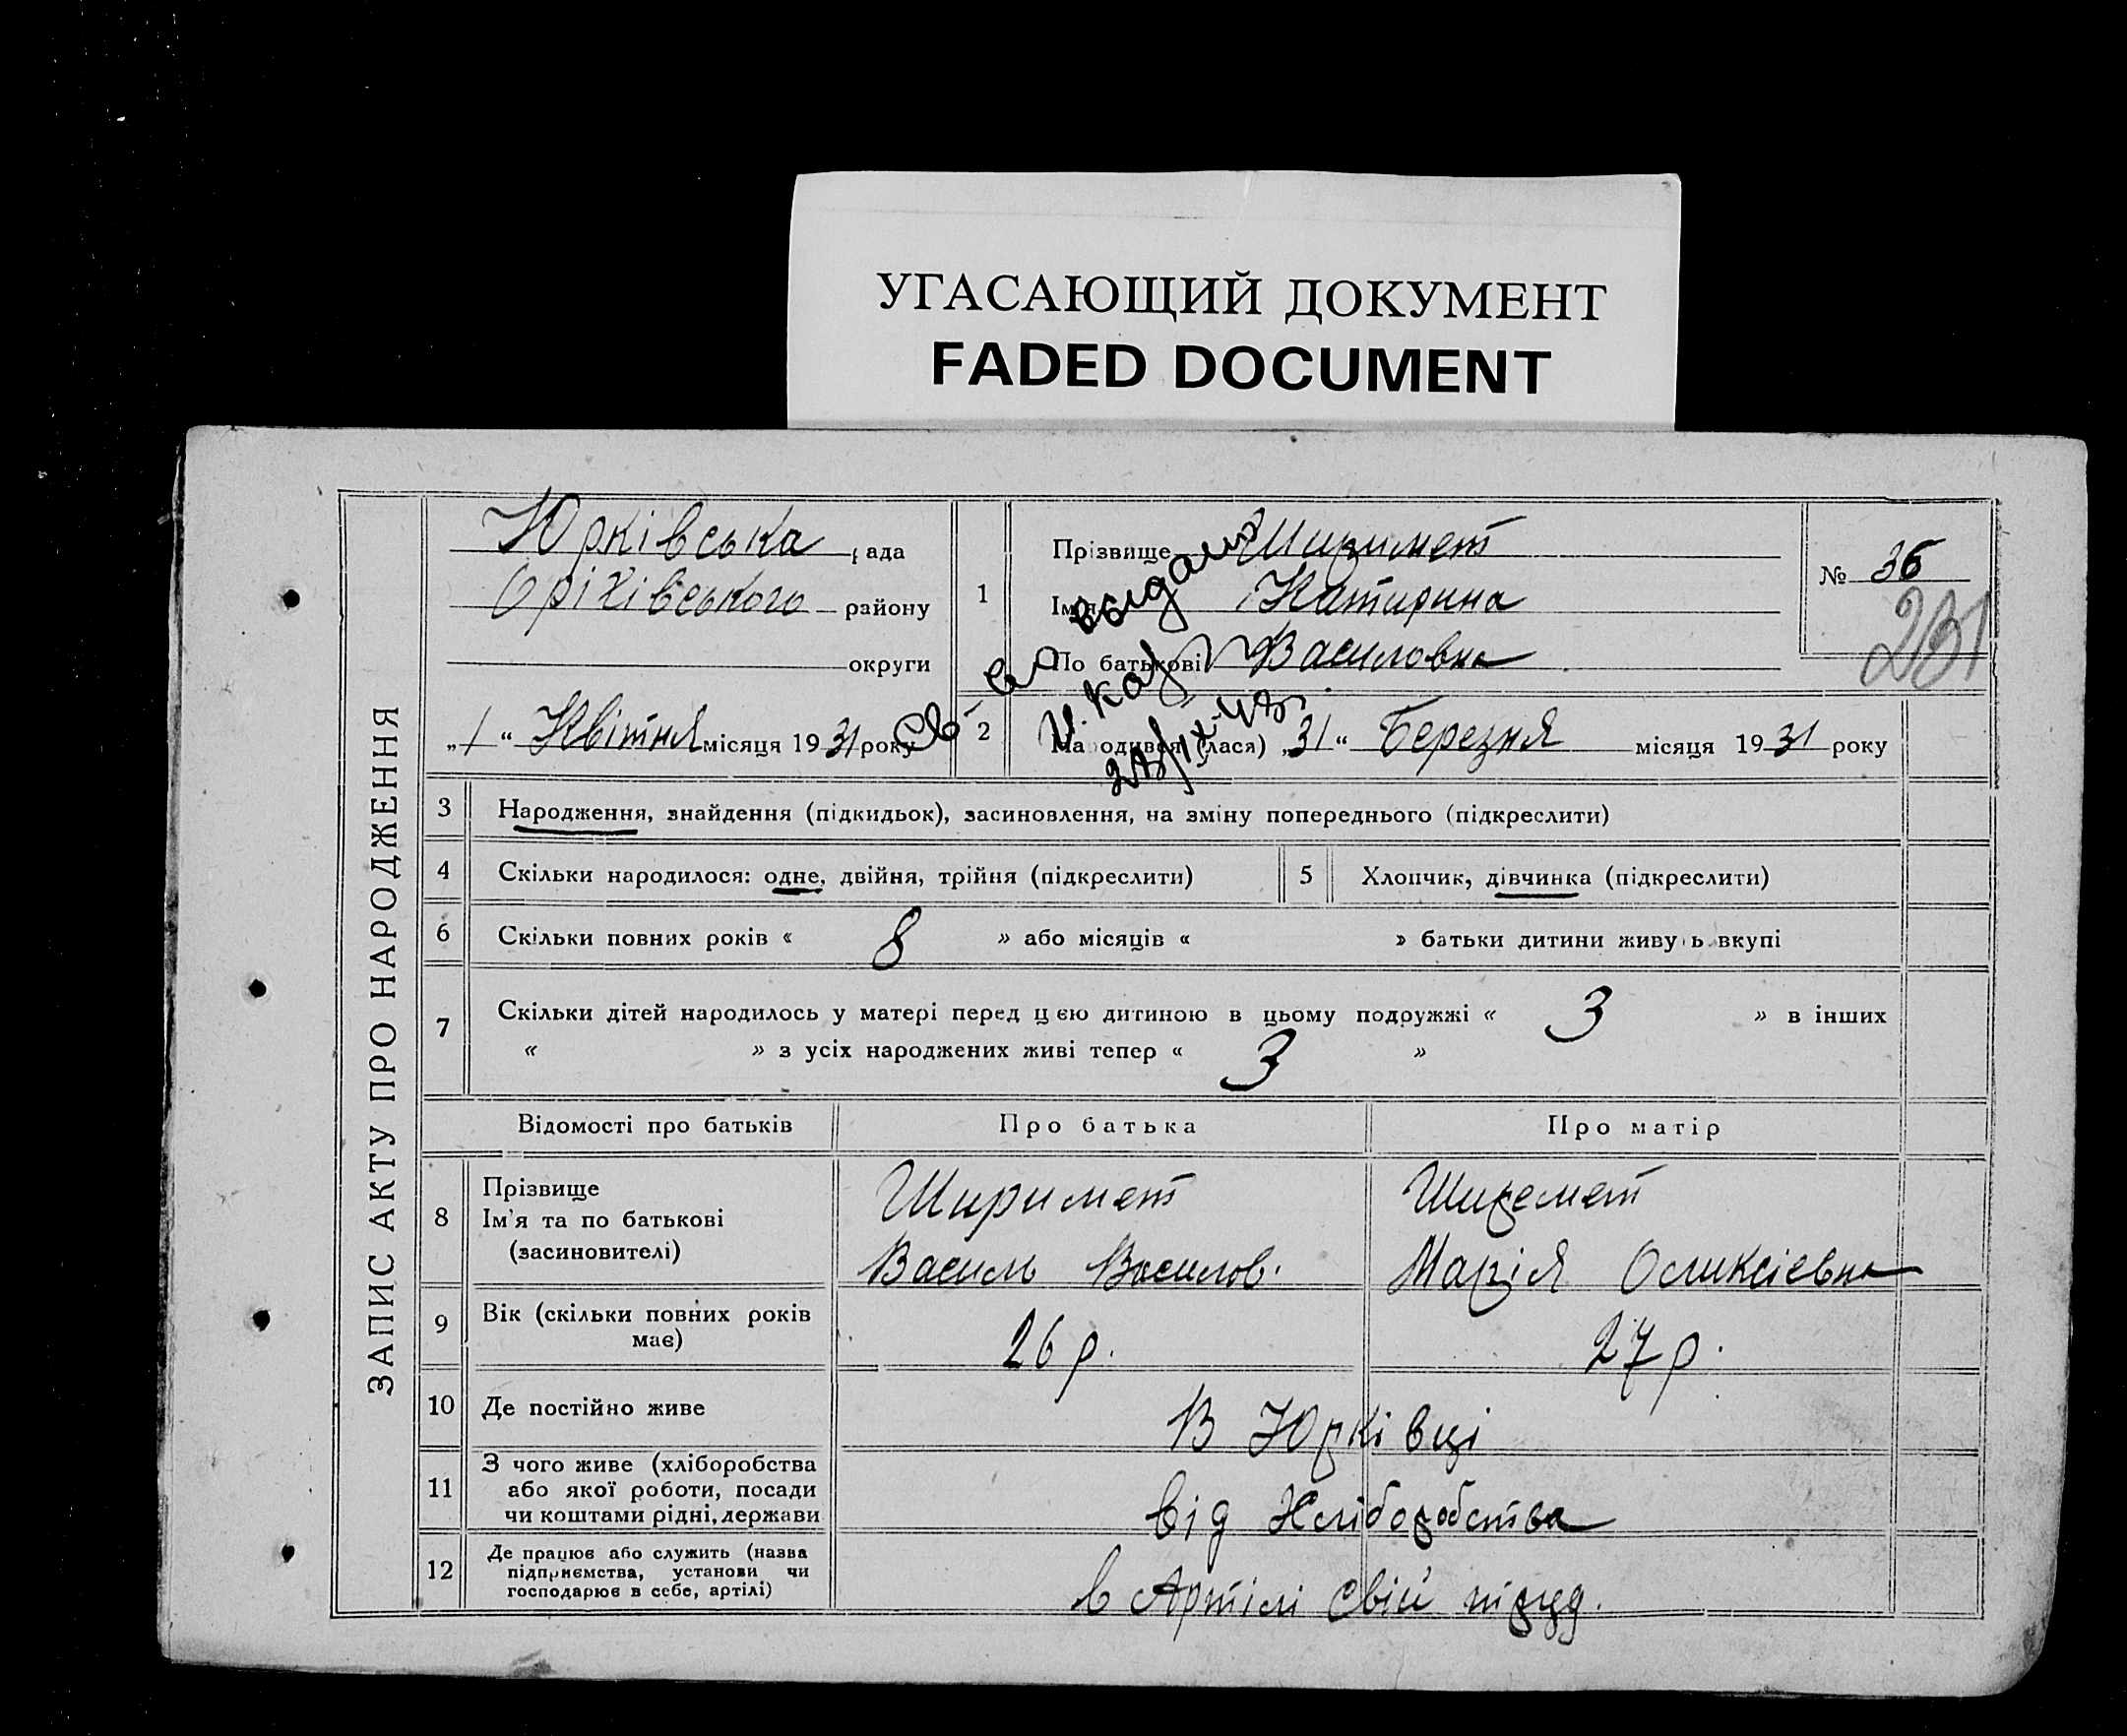 УГАСАЮЩИЙ ДОКУМЕНТ
FADED DOCUMENT
ЗАПИС АКТУ ПРО НАРОДЖЕННЯ
Юрківська рада
Оріхівського району
округи
„1“ Квітня місяця 1931 року
1
Прізвище Ширимет
Ім'я Катирина
По батькові Василовна
№ 36
231
св-во выдано
23/IX-43
2
Народився (лася) „31“ Березня місяця 1931 року
3 Народження, знайдення (підкидьок), засиновлення, на зміну попереднього (підкреслити)
4 Скільки народилося: одне, двійня, трійня (підкреслити)
5 Хлопчик, дівчинка (підкреслити)
6 Скільки повних років « 8 » або місяців « » батьки дитини живуть вкупі
7 Скільки дітей народилось у матері перед цією дитиною в цьому подружжі « 3 » в інших
« » з усіх народжених живі тепер « 3 »
Відомості про батьків Про батька Про матір
8 Прізвище
Ім'я та по батькові
(засиновителі)
Ширимет
Василь Василов.
Ширемет
Марія Оликсієвна
9 Вік (скільки повних років
має)
26 р. 27 р.
10 Де постійно живе В Юрківці
11 З чого живе (хліборобства
або якої роботи, посади
чи коштами рідні, держави
від Хліборобства
12 Де працює або служить (назва
підприємства, установи чи
господарює в себе, артілі)
в Артілі Свій труд.